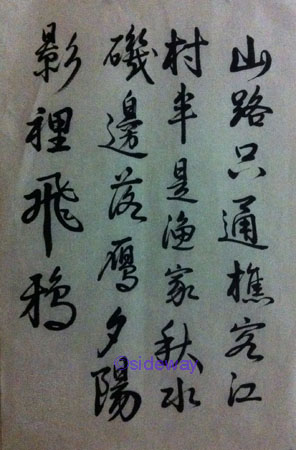 山路只通樵客江
村半是漁家秋水
磯邊落鴈夕陽
影裡飛鴉
©sideway